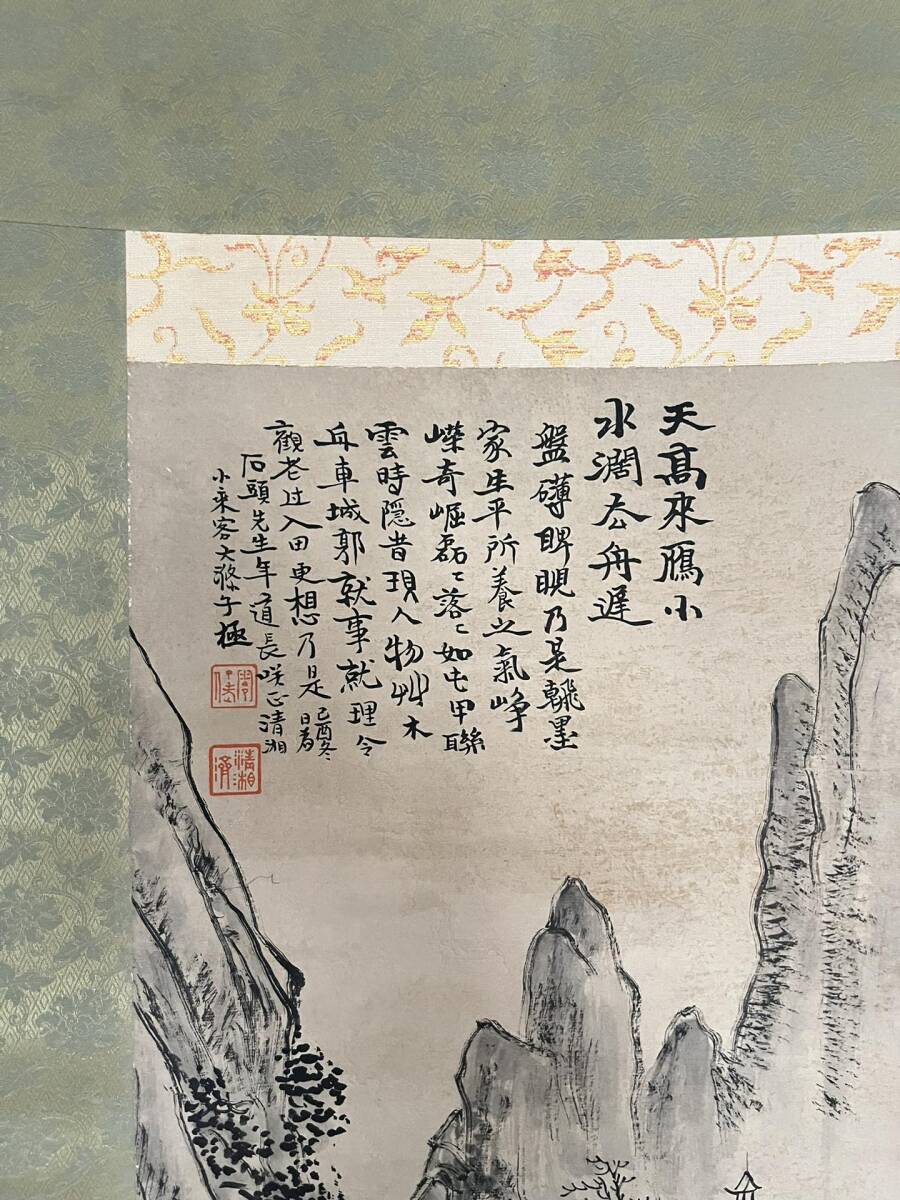 天高來鴈小
水濶去舟遅
盤礴睥睨乃是翰墨
家生平所養之氣崢
嶸奇崛磊〻落〻如屯甲聯
雲時隱昔現人物艸木
舟車城郭就事就理令
觀老过入田更想乃是己酉冬日為
石頭先生年道長咲正清湘
小乘客大滌子極